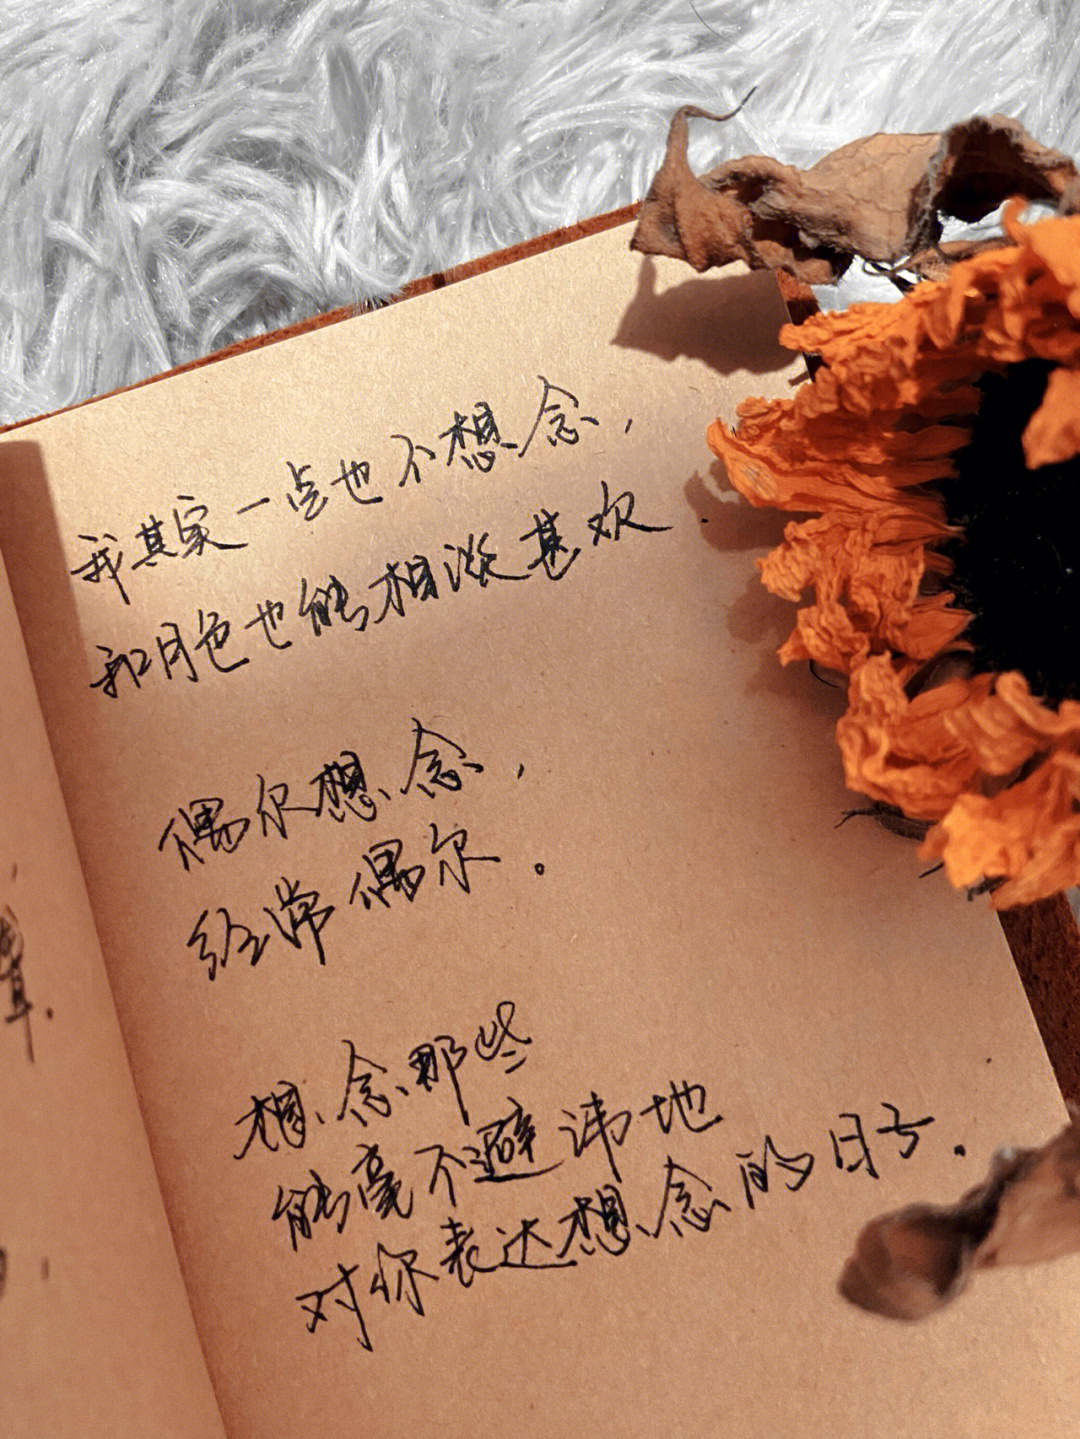 我其实一点也不想念，
和月色也能相谈甚欢
偶尔想念，
经常偶尔。
想念那些
能毫不避讳地
对你表达想念的日子.